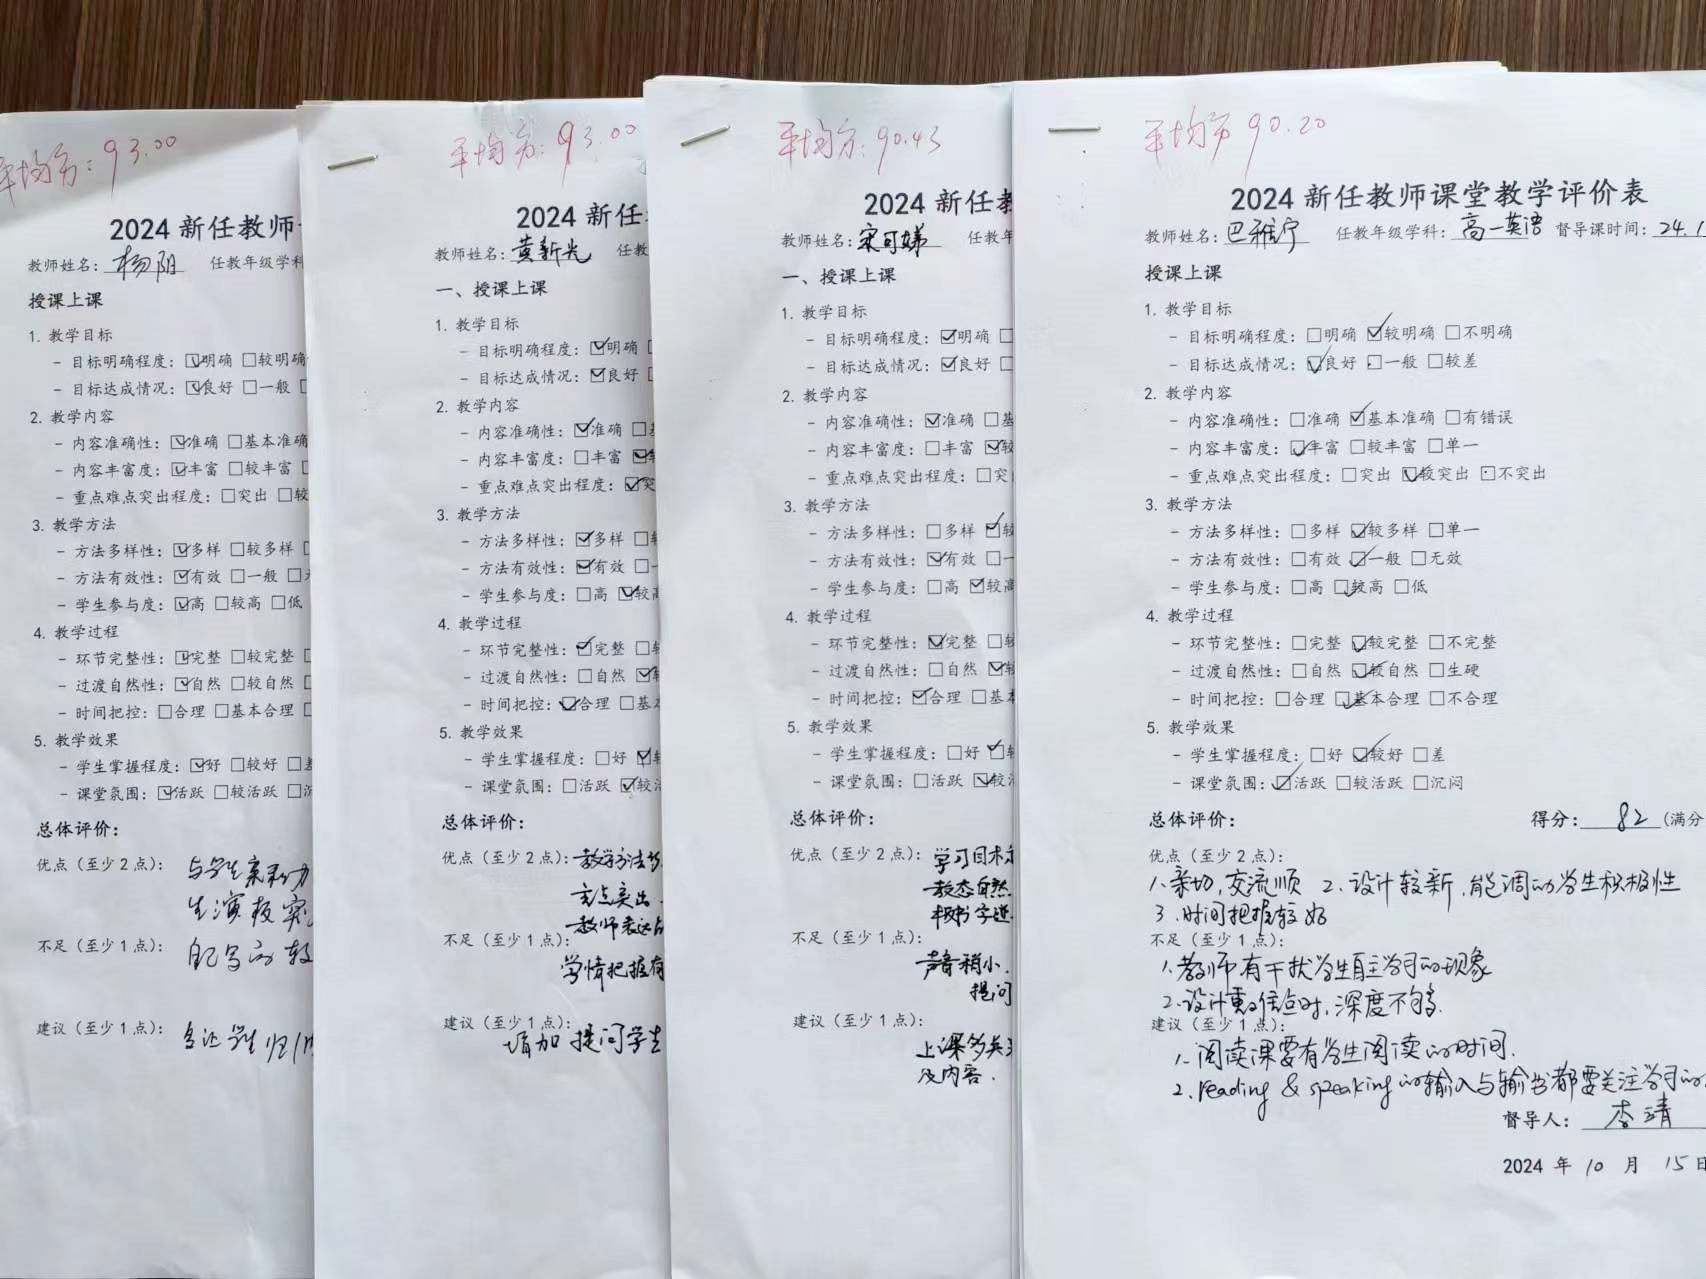 平均分: 93.00
2024 新任教师
教师姓名: 杨阳 任教年级学科
授课上课
1. 教学目标
- 目标明确程度: ☑明确 □较明确
- 目标达成情况: ☑良好 □一般 □
2. 教学内容
- 内容准确性: ☑准确 □基本准确
- 内容丰富度: ☑丰富 □较丰富 □
- 重点难点突出程度: □突出 □较
3. 教学方法
- 方法多样性: ☑多样 □较多样 □
- 方法有效性: ☑有效 □一般 □
- 学生参与度: ☑高 □较高 □低
4. 教学过程
- 环节完整性: ☑完整 □较完整 □
- 过渡自然性: ☑自然 □较自然 □
- 时间把控: □合理 □基本合理 □
5. 教学效果
- 学生掌握程度: ☑好 □较好 □
- 课堂氛围: ☑活跃 □较活跃 □
总体评价:
优点 (至少 2 点): 与学生
生演板
不足 (至少 1 点):
建议 (至少 1 点):
平均分: 93.00
2024 新任
教师姓名: 黄新光 任教
一、授课上课
1. 教学目标
- 目标明确程度: ☑明确 □
- 目标达成情况: ☑良好 □
2. 教学内容
- 内容准确性: ☑准确 □
- 内容丰富度: □丰富 ☑
- 重点难点突出程度: ☑突
3. 教学方法
- 方法多样性: ☑多样 □
- 方法有效性: ☑有效 □
- 学生参与度: □高 ☑较高
4. 教学过程
- 环节完整性: ☑完整 □
- 过渡自然性: □自然 ☑
- 时间把控: ☑合理 □基
5. 教学效果
- 学生掌握程度: □好 ☑
- 课堂氛围: □活跃 ☑较
总体评价:
优点 (至少 2 点): 教学方法
突出
教师表达
不足 (至少 1 点):
学情把握有
建议 (至少 1 点):
增加提问学生
平均分: 90.43
2024 新任教
教师姓名: 宋可娣 任教年
一、授课上课
1. 教学目标
- 目标明确程度: ☑明确 □
- 目标达成情况: ☑良好 □
2. 教学内容
- 内容准确性: ☑准确 □
- 内容丰富度: □丰富 ☑较
- 重点难点突出程度: □突
3. 教学方法
- 方法多样性: □多样 ☑较
- 方法有效性: ☑有效 □一
- 学生参与度: □高 ☑较高
4. 教学过程
- 环节完整性: ☑完整 □较
- 过渡自然性: □自然 ☑
- 时间把控: ☑合理 □基本
5. 教学效果
- 学生掌握程度: □好 ☑
- 课堂氛围: □活跃 ☑较
总体评价:
优点 (至少 2 点): 学习目标
教态自然
板书字迹
不足 (至少 1 点):
声音稍小.
提问
建议 (至少 1 点):
上课多关
及内容.
平均分 90.20
2024 新任教师课堂教学评价表
教师姓名: 巴雅宁 任教年级学科: 高一英语 督导课时间: 24.1
授课上课
1. 教学目标
- 目标明确程度: □明确 ☑较明确 □不明确
- 目标达成情况: ☑良好 □一般 □较差
2. 教学内容
- 内容准确性: □准确 ☑基本准确 □有错误
- 内容丰富度: ☑丰富 □较丰富 □单一
- 重点难点突出程度: □突出 ☑较突出 □不突出
3. 教学方法
- 方法多样性: □多样 ☑较多样 □单一
- 方法有效性: □有效 ☑一般 □无效
- 学生参与度: □高 ☑较高 □低
4. 教学过程
- 环节完整性: □完整 ☑较完整 □不完整
- 过渡自然性: □自然 ☑较自然 □生硬
- 时间把控: □合理 ☑基本合理 □不合理
5. 教学效果
- 学生掌握程度: □好 ☑较好 □差
- 课堂氛围: ☑活跃 □较活跃 □沉闷
总体评价: 得分: 82 (满分
优点 (至少 2 点):
1. 亲切, 交流顺 2. 设计较新, 能调动学生积极性
3. 时间把握较好
不足 (至少 1 点):
1. 教师有干扰学生自主学习的现象
2. 设计重难点时, 深度不够.
建议 (至少 1 点):
1. 阅读课要有学生阅读的时间.
2. reading & speaking 的输入与输出都要关注学习的
督导人: 李靖
2024 年 10 月 15 日